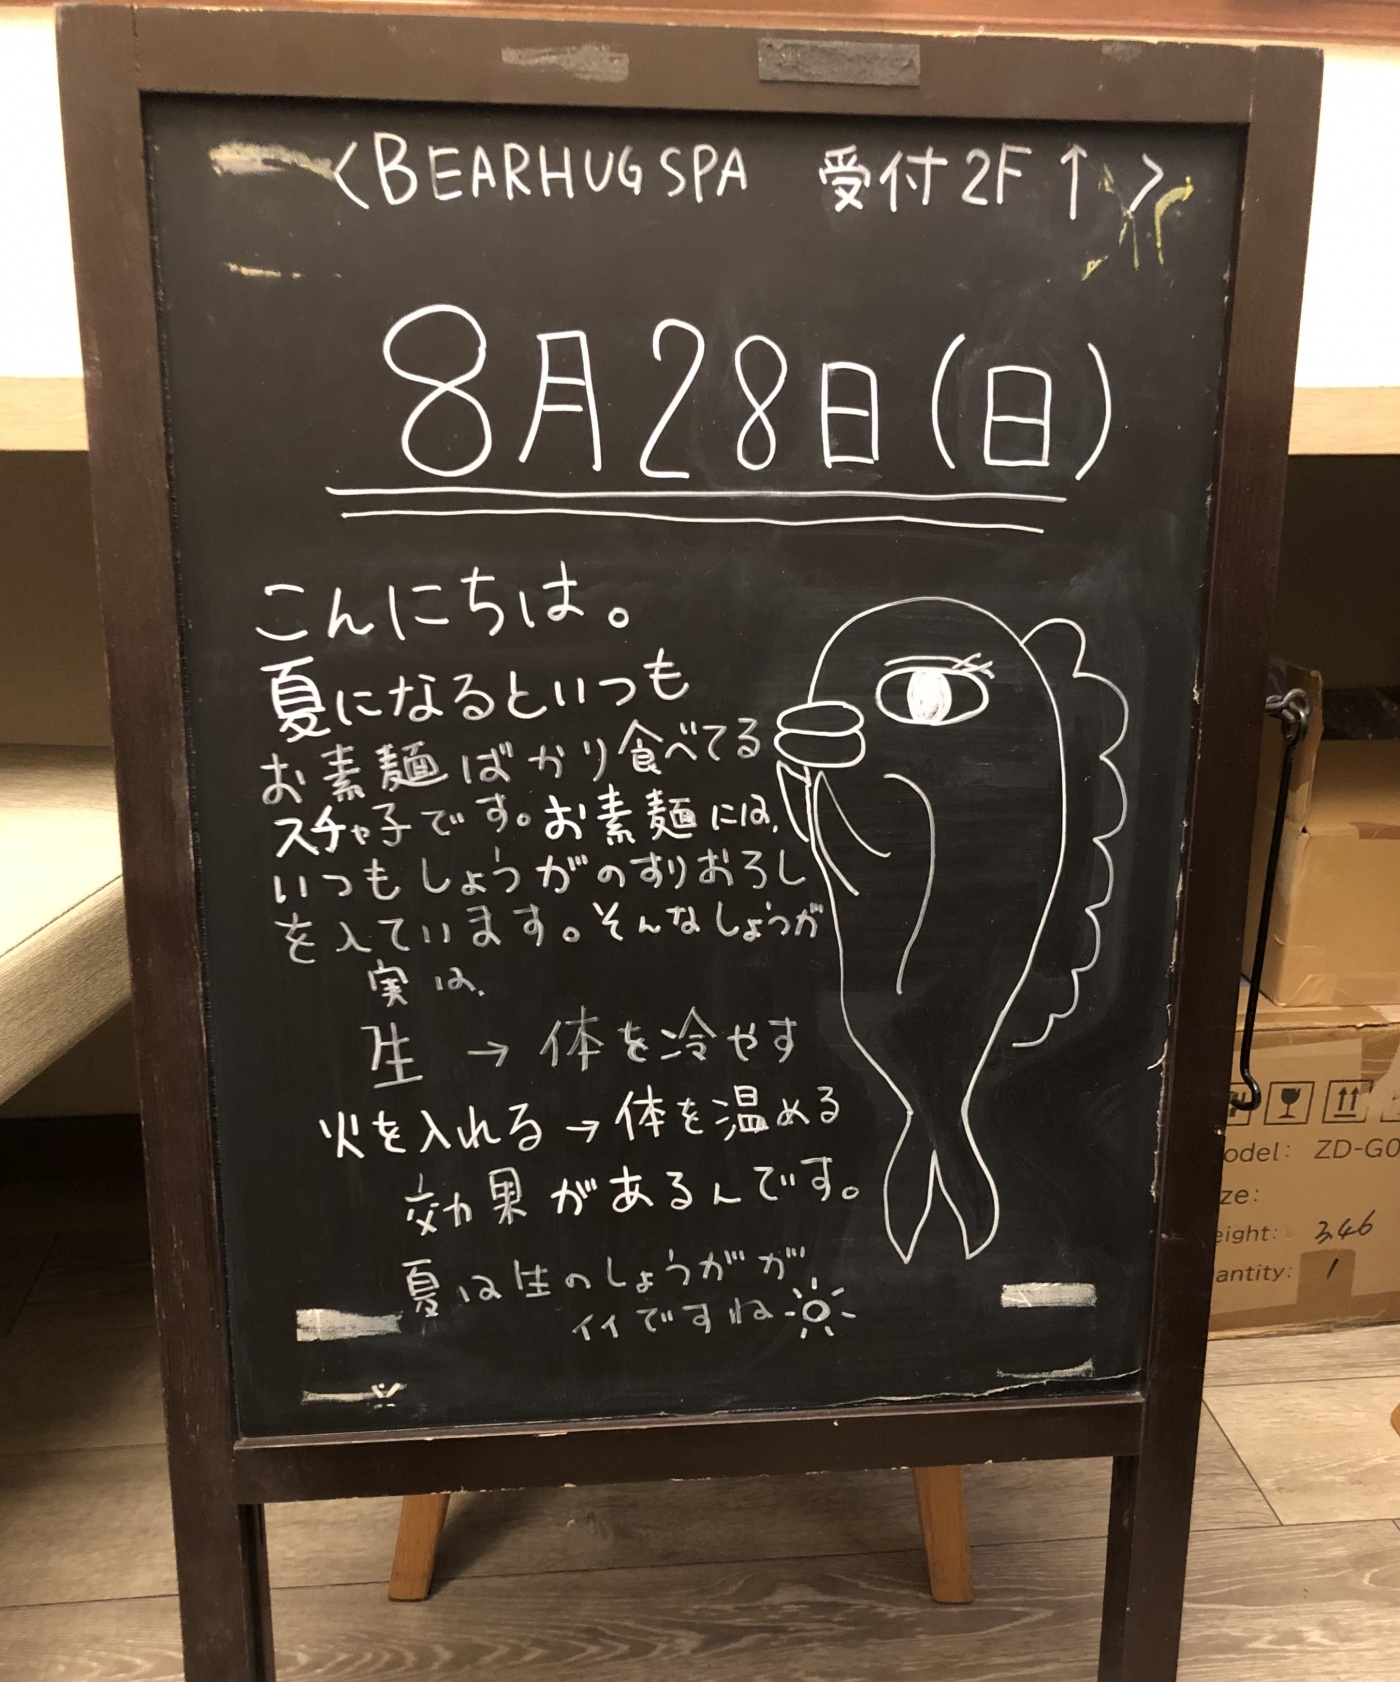 <BEARHUG SPA 受付2F↑>
8月28日(日)
こんにちは。
夏になるといつも
お素麺ばかり食べてる
スチャ子です。お素麺には、
いつもしょうがのすりおろし
を入ています。そんなしょうが
実は、
生 → 体を冷やす
火を入れる → 体を温める
効果があるんです。
夏は生のしょうがが
イイですね
odel: ZD-G0
ze:
eight: 3.46
antity: 1